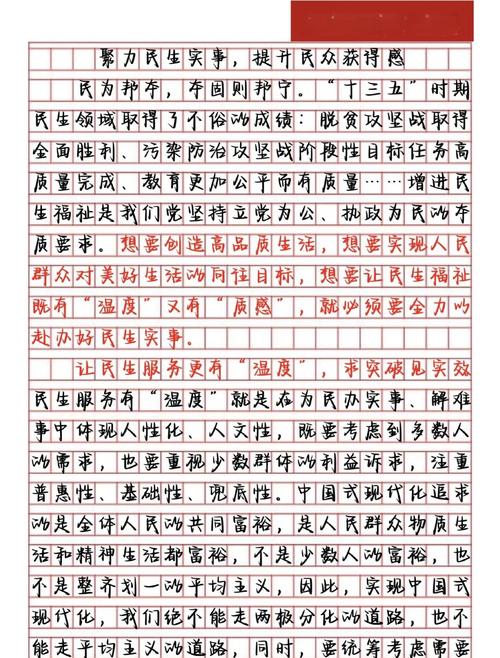 聚力民生实事，提升民众获得感
民为邦本，本固则邦宁。“十三五”时期
民生领域取得了不俗的成绩：脱贫攻坚战取得
全面胜利、污染防治攻坚战阶段性目标任务高
质量完成、教育更加公平而有质量……增进民
生福祉是我们党坚持立党为公、执政为民的本
质要求。想要创造高品质生活，想要实现人民
群众对美好生活的向往目标，想要让民生福祉
既有“温度”又有“质感”，就必须要全力以
赴办好民生实事。
让民生服务更有“温度”，求突破见实效
民生服务有“温度”就是在为民办实事、解难
事中体现人性化、人文性，既要考虑到多数人
的需求，也要重视少数群体的利益诉求，注重
普惠性、基础性、兜底性。中国式现代化追求
的是全体人民的共同富裕，是人民群众物质生
活和精神生活都富裕，不是少数人的富裕，也
不是整齐划一的平均主义，因此，实现中国式
现代化，我们绝不能走两极分化的道路，也不
能走平均主义的道路，同时，要统筹考虑需要